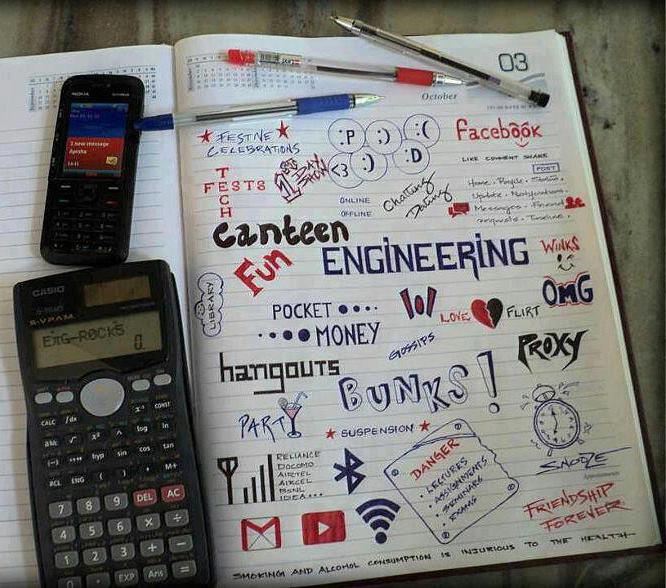 03
October
NOKIA
1 new message
Ayesha
CASIO
S-V.P.A.M.
EnG-ROCKS
0.
CALC
x-1
CONST
log
ln
hyp
sin
cos
tan
RCL
ENG
(
)
,
M+
7
8
9
DEL
AC
4
5
6
×
÷
1
2
3
+
-
0
.
EXP
Ans
=
FESTIVE
CELEBRATIONS
:P
;)
:(
<3
:)
:D
Facebook
LIKE COMMENT SHARE
POST
Home. Profile. Status.
Update. Notifications.
Messages. Friend
requests. Timeline.
TECH
FESTS
1st DAY
SHOW
ONLINE
OFFLINE
Chatting
Dating
canteen
Fun
ENGINEERING
WINKS
LIBRARY
POCKET
MONEY
LOVE
FLIRT
OMG
GOSSIPS
PROXY
hangouts
BUNKS!
PARTY
SUSPENSION
SNOOZE
RELIANCE
DOCOMO
AIRTEL
AIRCEL
BSNL
IDEA...
DANGER
LECTURES
ASSIGNMENTS
SEMINARS
EXAMS
FRIENDSHIP
FOREVER
SMOKING AND ALCOHOL CONSUMPTION IS INJURIOUS TO THE HEALTH